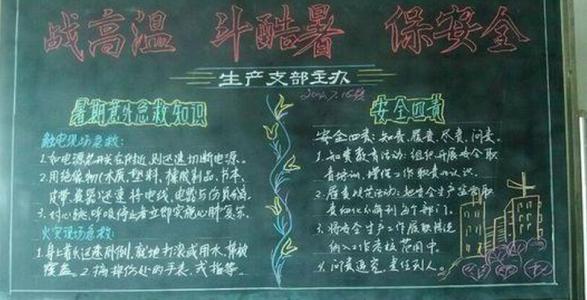 战高温 斗酷暑 保安全
生产支部主办
暑期意外急救知识
触电现场急救:
1.如电源开关在附近,则迅速切断电源。
2.用绝缘物(木质,塑料,橡胶制品,书本,
皮带,瓷器)迅速将电线,电器与伤员分离。
3.对心跳,呼吸停止者立即实施心肺复苏。
火灾现场急救:
1.身上着火迅速卧倒,就地打滚或用水,棉被
覆盖。2.摘掉伤处的手表,戒指等。
安全四责
安全四责:知责,履责,尽责,问责。
1.知责教育活动:组织开展安全职
责培训,增强工作职责的认识。
2.履责规范活动:把安全生产监管职
责细化分解到每个部门。
3.将安全生产工作履职情况
纳入工作考核范围中。
4.问责追究,责任到人。